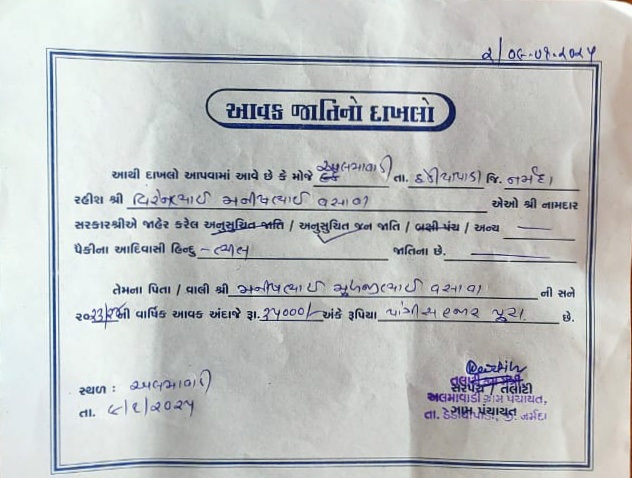 ૨/ ૦૯-૦૧-૨૦૨૫
આવક જાતિનો દાખલો
આથી દાખલો આપવામાં આવે છે કે મોજે અલમાવાડી તા. ડેડીયાપાડા જિ. નર્મદા
રહીશ શ્રી વિરેનભાઈ મનીષભાઈ વસાવા એઓ શ્રી નામદાર
સરકારશ્રીએ જાહેર કરેલ અનુસુચિત જાતિ / અનુસુચિત જન જાતિ / બક્ષી પંચ / અન્ય
પૈકીના આદિવાસી હિન્દુ - ભીલ જાતિના છે.
તેમના પિતા / વાલી શ્રી મનીષભાઈ વસાવા ની સને
૨૦૨૩/૨૪ની વાર્ષિક આવક અંદાજે રૂા. ૩૫૦૦૦/- અંકે રૂપિયા પાંત્રીસ હજાર પૂરા છે.
સ્થળ : અલમાવાડી
તા. ૯/૧/૨૦૨૫
સરપંચ / તલાટી
અલમાવાડી ગ્રામ પંચાયત,
ગ્રામ પંચાયત
તા. ડેડીયાપાડા, જી. નર્મદા